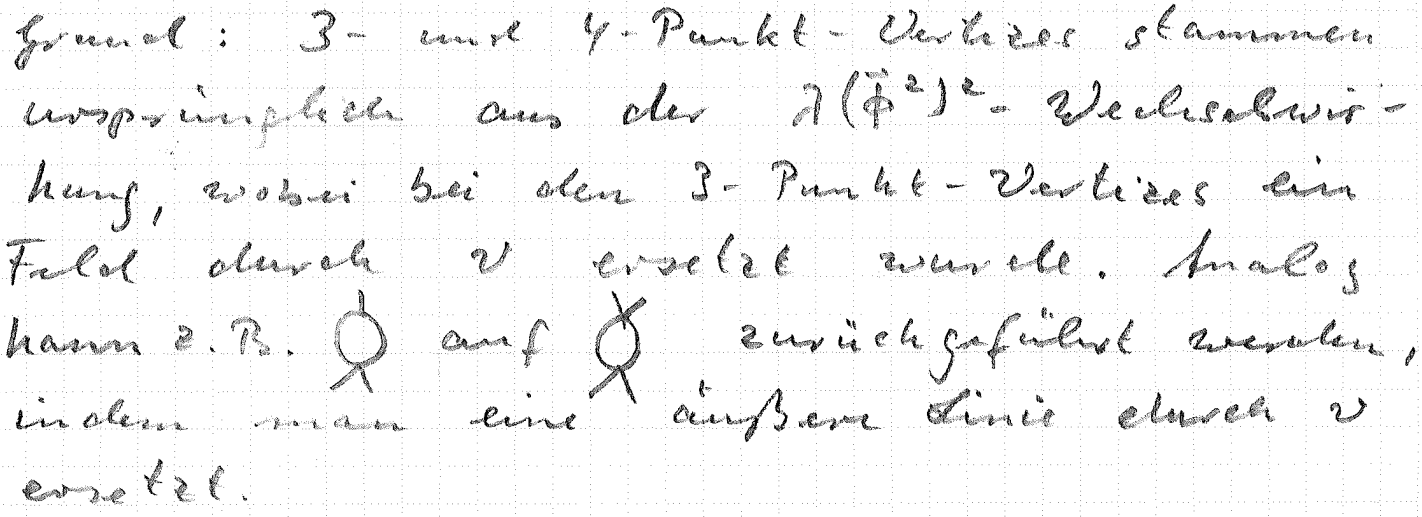 Grund: 3- und 4-Punkt-Vertizes stammen
ursprünglich aus der λ(Φ⃗²)²-Wechselwir-
kung, wobei bei den 3-Punkt-Vertizes ein
Feld durch v ersetzt wurde. Analog
kann z.B. auf zurückgeführt werden,
indem man eine äußere Linie durch v
ersetzt.